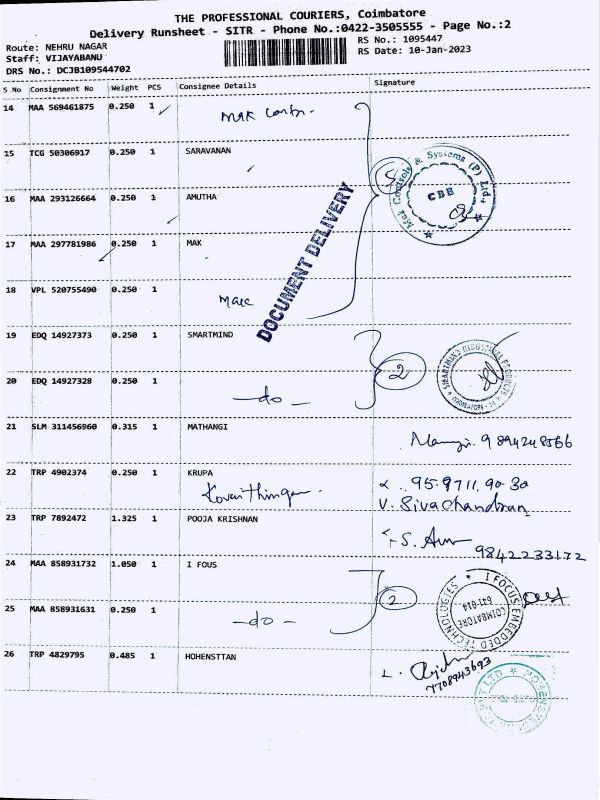 THE PROFESSIONAL COURIERS, Coimbatore
Delivery Runsheet - SITR - Phone No.:0422-3505555 - Page No.:2
Route: NEHRU NAGAR
Staff: VIJAYABANU
DRS No.: DCJB109544702
RS No.: 1095447
RS Date: 10-Jan-2023
S No Consignment No Weight PCS Consignee Details Signature
14 MAA 569461875 0.250 1 Mak
15 TCG 50306917 0.250 1 SARAVANAN
16 MAA 293126664 0.250 1 AMUTHA
17 MAA 297781986 0.250 1 MAK
18 VPL 520755490 0.250 1
5
Mak Controls & Systems (P) Ltd.
CBE
DOCUMENT DELIVERY
19 EDQ 14927373 0.250 1 SMARTMIND
20 EDQ 14927328 0.250 1 -do-
2
SMARTMIND INDUSTRIAL PRODUCTS
COIMBATORE
21 SLM 311456960 0.315 1 MATHANGI
22 TRP 4902374 0.250 1 KRUPA
95.9711.90 30
V. Sivachandran
23 TRP 7892472 1.325 1 POOJA KRISHNAN
9842233172
24 MAA 858931732 1.050 1 I FOUS
25 MAA 858931631 0.250 1 -do-
2
I FOCUS EMBEDDED TECHNOLOGIES
COIMBATORE
641-014
26 TRP 4829795 0.485 1 HOHENSTTAN
7708943693